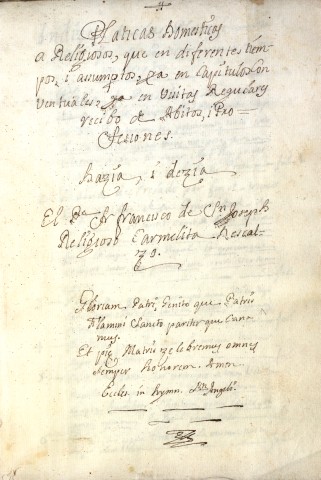 Platicas Domesticas
a Religiosos, que en diferente tiem-
pos, i asumptos, ya en Capitulos Con
ventuales, ya en Visitas Regulares
recibo de Abitos, i Pro-
fessiones.
hazia, i dezia
El Pe Fr francisco de Sn Joseph
Religioso Carmelita Descal-
zo.
Gloriam Patri, Genito que Patris
Flamini Sancto pariter que Cana
mus.
Et piæ Matris celebremus omnes
Semper honorem. Amen.
Eccles. in hymn.